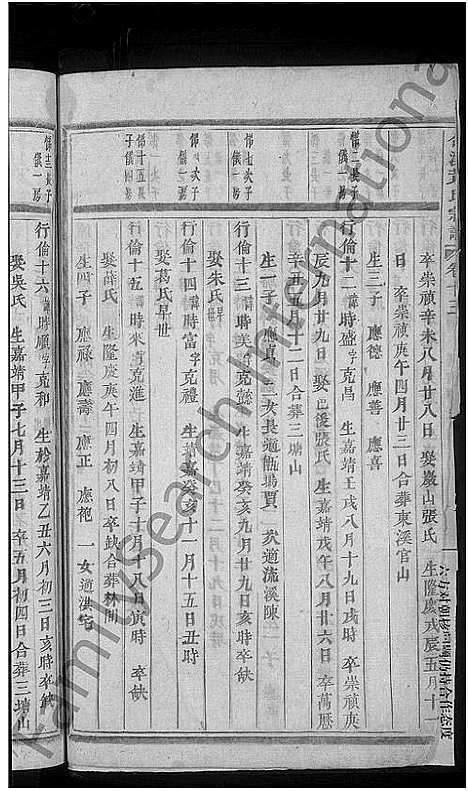 卒崇禎辛未八月廿八日 娶巖山張氏 生隆慶戊辰五月十一
日 卒崇禎庚午四月廿三日合葬東溪官山
生三子 應德 應善 應喜
脩二長子
儀一房
行倫十二諱時盛字克昌 生嘉靖壬戌八月十九日戌時 卒崇禎庚
辰九月廿九日 娶邑後張氏 生嘉靖戊午八月廿六日 卒萬歷
辛丑五月十二日合葬三塘山
生一子 應真 三女長適甑場賈 次適流溪陳
脩七次子
儀一房
行倫十三諱時美字克懿 生嘉靖癸亥九月廿九日亥時卒缺
娶朱氏早
次子
儀一房
行倫十四諱時富字克禮 生嘉靖癸亥十一月十五日丑時
娶葛氏早世
脩十五長
子儀四房
行倫十五諱時來字克進 生嘉靖甲子十月十八日寅時 卒缺
娶薛氏 生隆慶庚午四月初八日卒缺合葬林間
生四子 應祿 應壽 應正 應袍 一女適湛宅
脩十三長子
儀一房
行倫十六諱時順字克和 生於嘉靖乙丑六月初三日亥時卒缺
娶吳氏 生嘉靖甲子七月十三日 卒五月初四日合葬三塘山
氏宗譜 卷十三
FamilySearch International